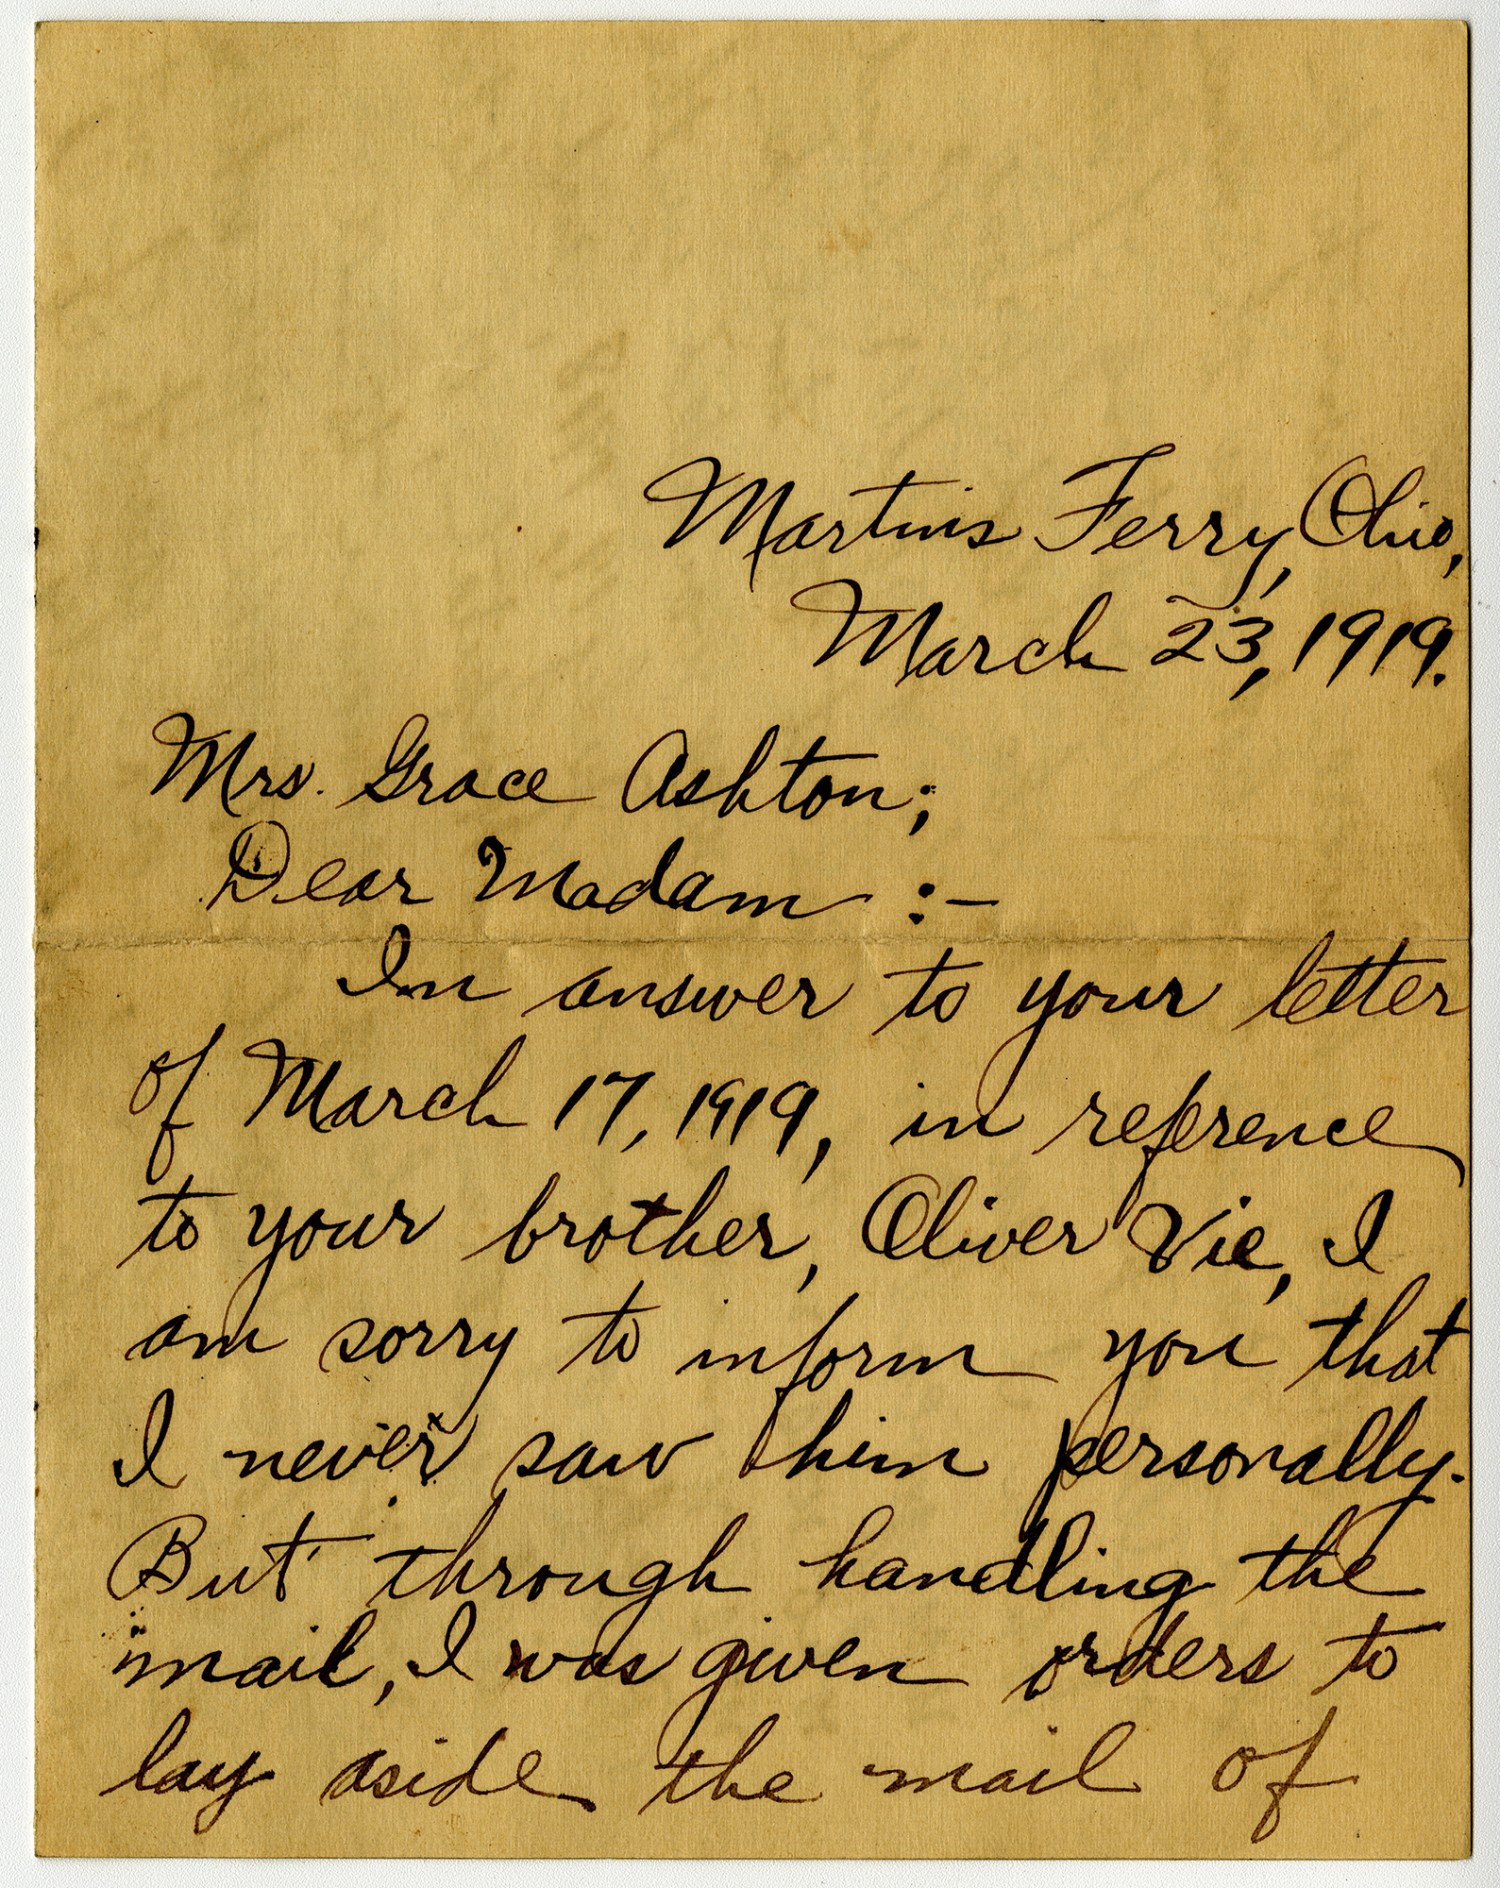 Martins Ferry, Ohio,
March 23, 1919.
Mrs. Grace Ashton;
Dear Madam :-
In answer to your letter
of March 17, 1919, in reference
to your brother, Oliver Vie, I
am sorry to inform you that
I never saw him personally.
But through handling the
mail, I was given orders to
lay aside the mail of